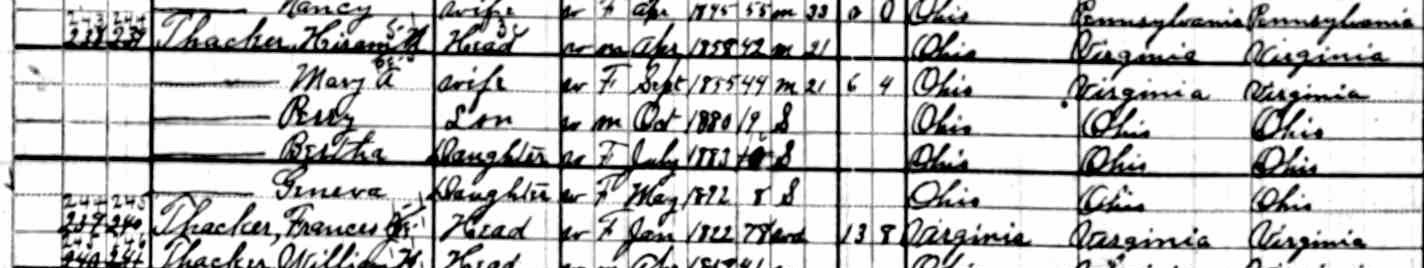 Nancy wife w F Apr 1845 55 m 33 0 0 Ohio Pennsylvania Pennsylvania
243 244
238 239 Thacker, Hiram Head w m Apr 1858 42 m 21 Ohio Virginia Virginia
Mary A wife w F Sept 1855 44 m 21 6 4 Ohio Virginia Virginia
Perry Son w m Oct 1880 19 S Ohio Ohio Ohio
Bertha Daughter w F July 1883 S Ohio Ohio Ohio
Geneva Daughter w F May 1892 8 S Ohio Ohio Ohio
244 245
239 240 Thacker, Frances Head w F Jan 1822 78 wd 13 8 Virginia Virginia Virginia
240 241 Thacker, William H. Head